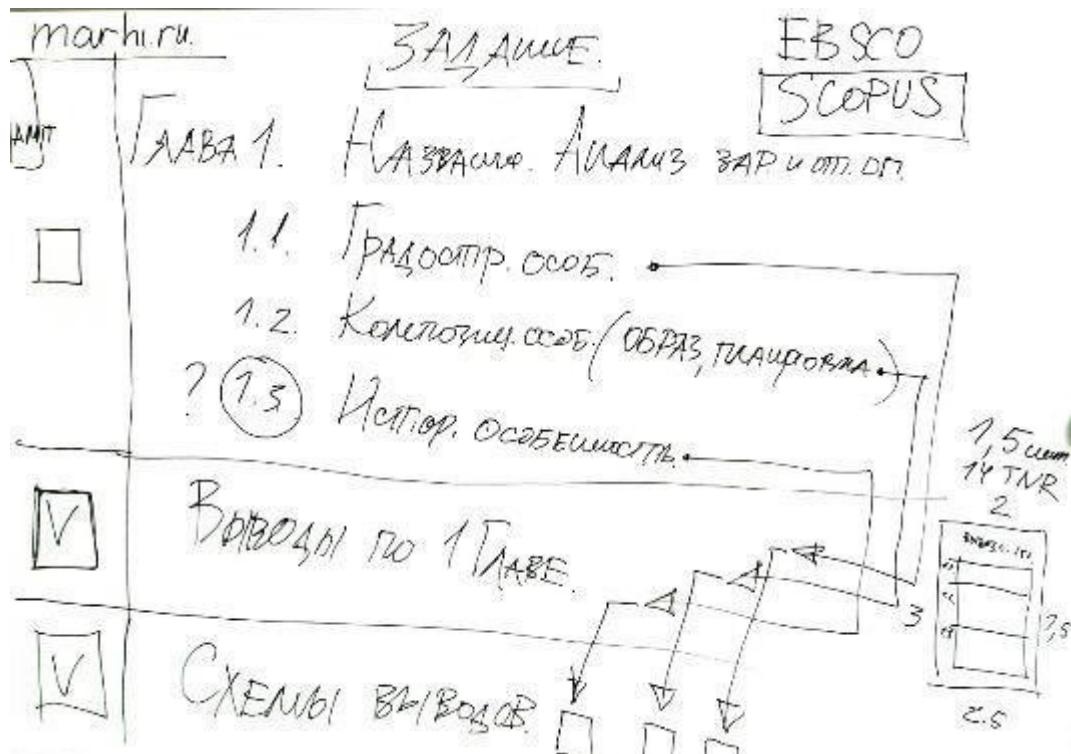 marhi.ru.
ЗАДАНИЕ.
EBSCO
SCOPUS
ГЛАВА 1. НАЗВАНИЕ. АНАЛИЗ ЗАР И ОТ. ОП.
1.1. ГРАДОСТР. ОСОБ.
1.2. КОМПОЗИЦ. ОСОБ. (ОБРАЗ, ПЛАНИРОВКА)
? 1.3 ИСТОР. ОСОБЕННОСТЬ.
1,5
14 TNR
2
V ВЫВОДЫ ПО 1 ГЛАВЕ.
3
V СХЕМЫ ВЫВОДОВ.
2.5